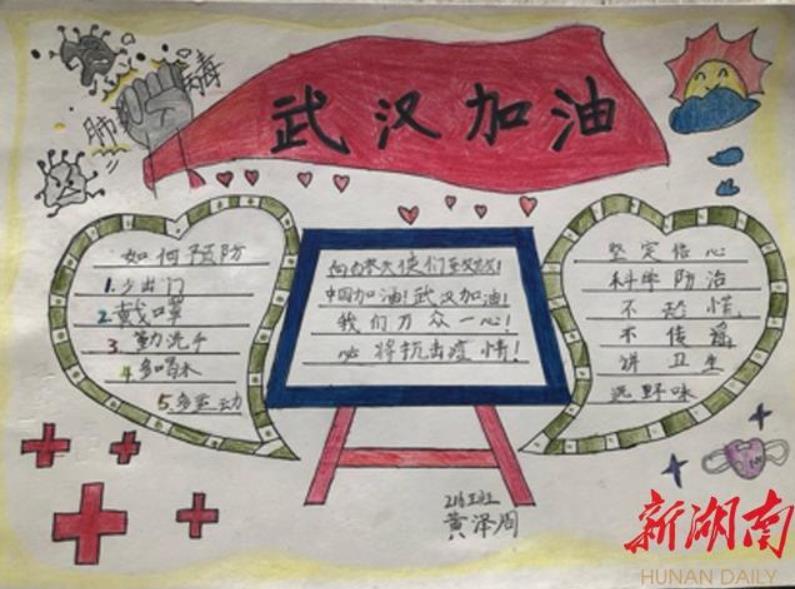 肺炎病毒
武汉加油
如何预防
1.少出门
2.戴口罩
3.勤洗手
4.多喝水
5.多运动
向白衣天使们致敬!
中国加油!武汉加油!
我们万众一心!
必将抗击疫情!
坚定信心
科学防治
不恐慌
不传谣
讲卫生
远野味
黄泽周
新湖南
HUNAN DAILY